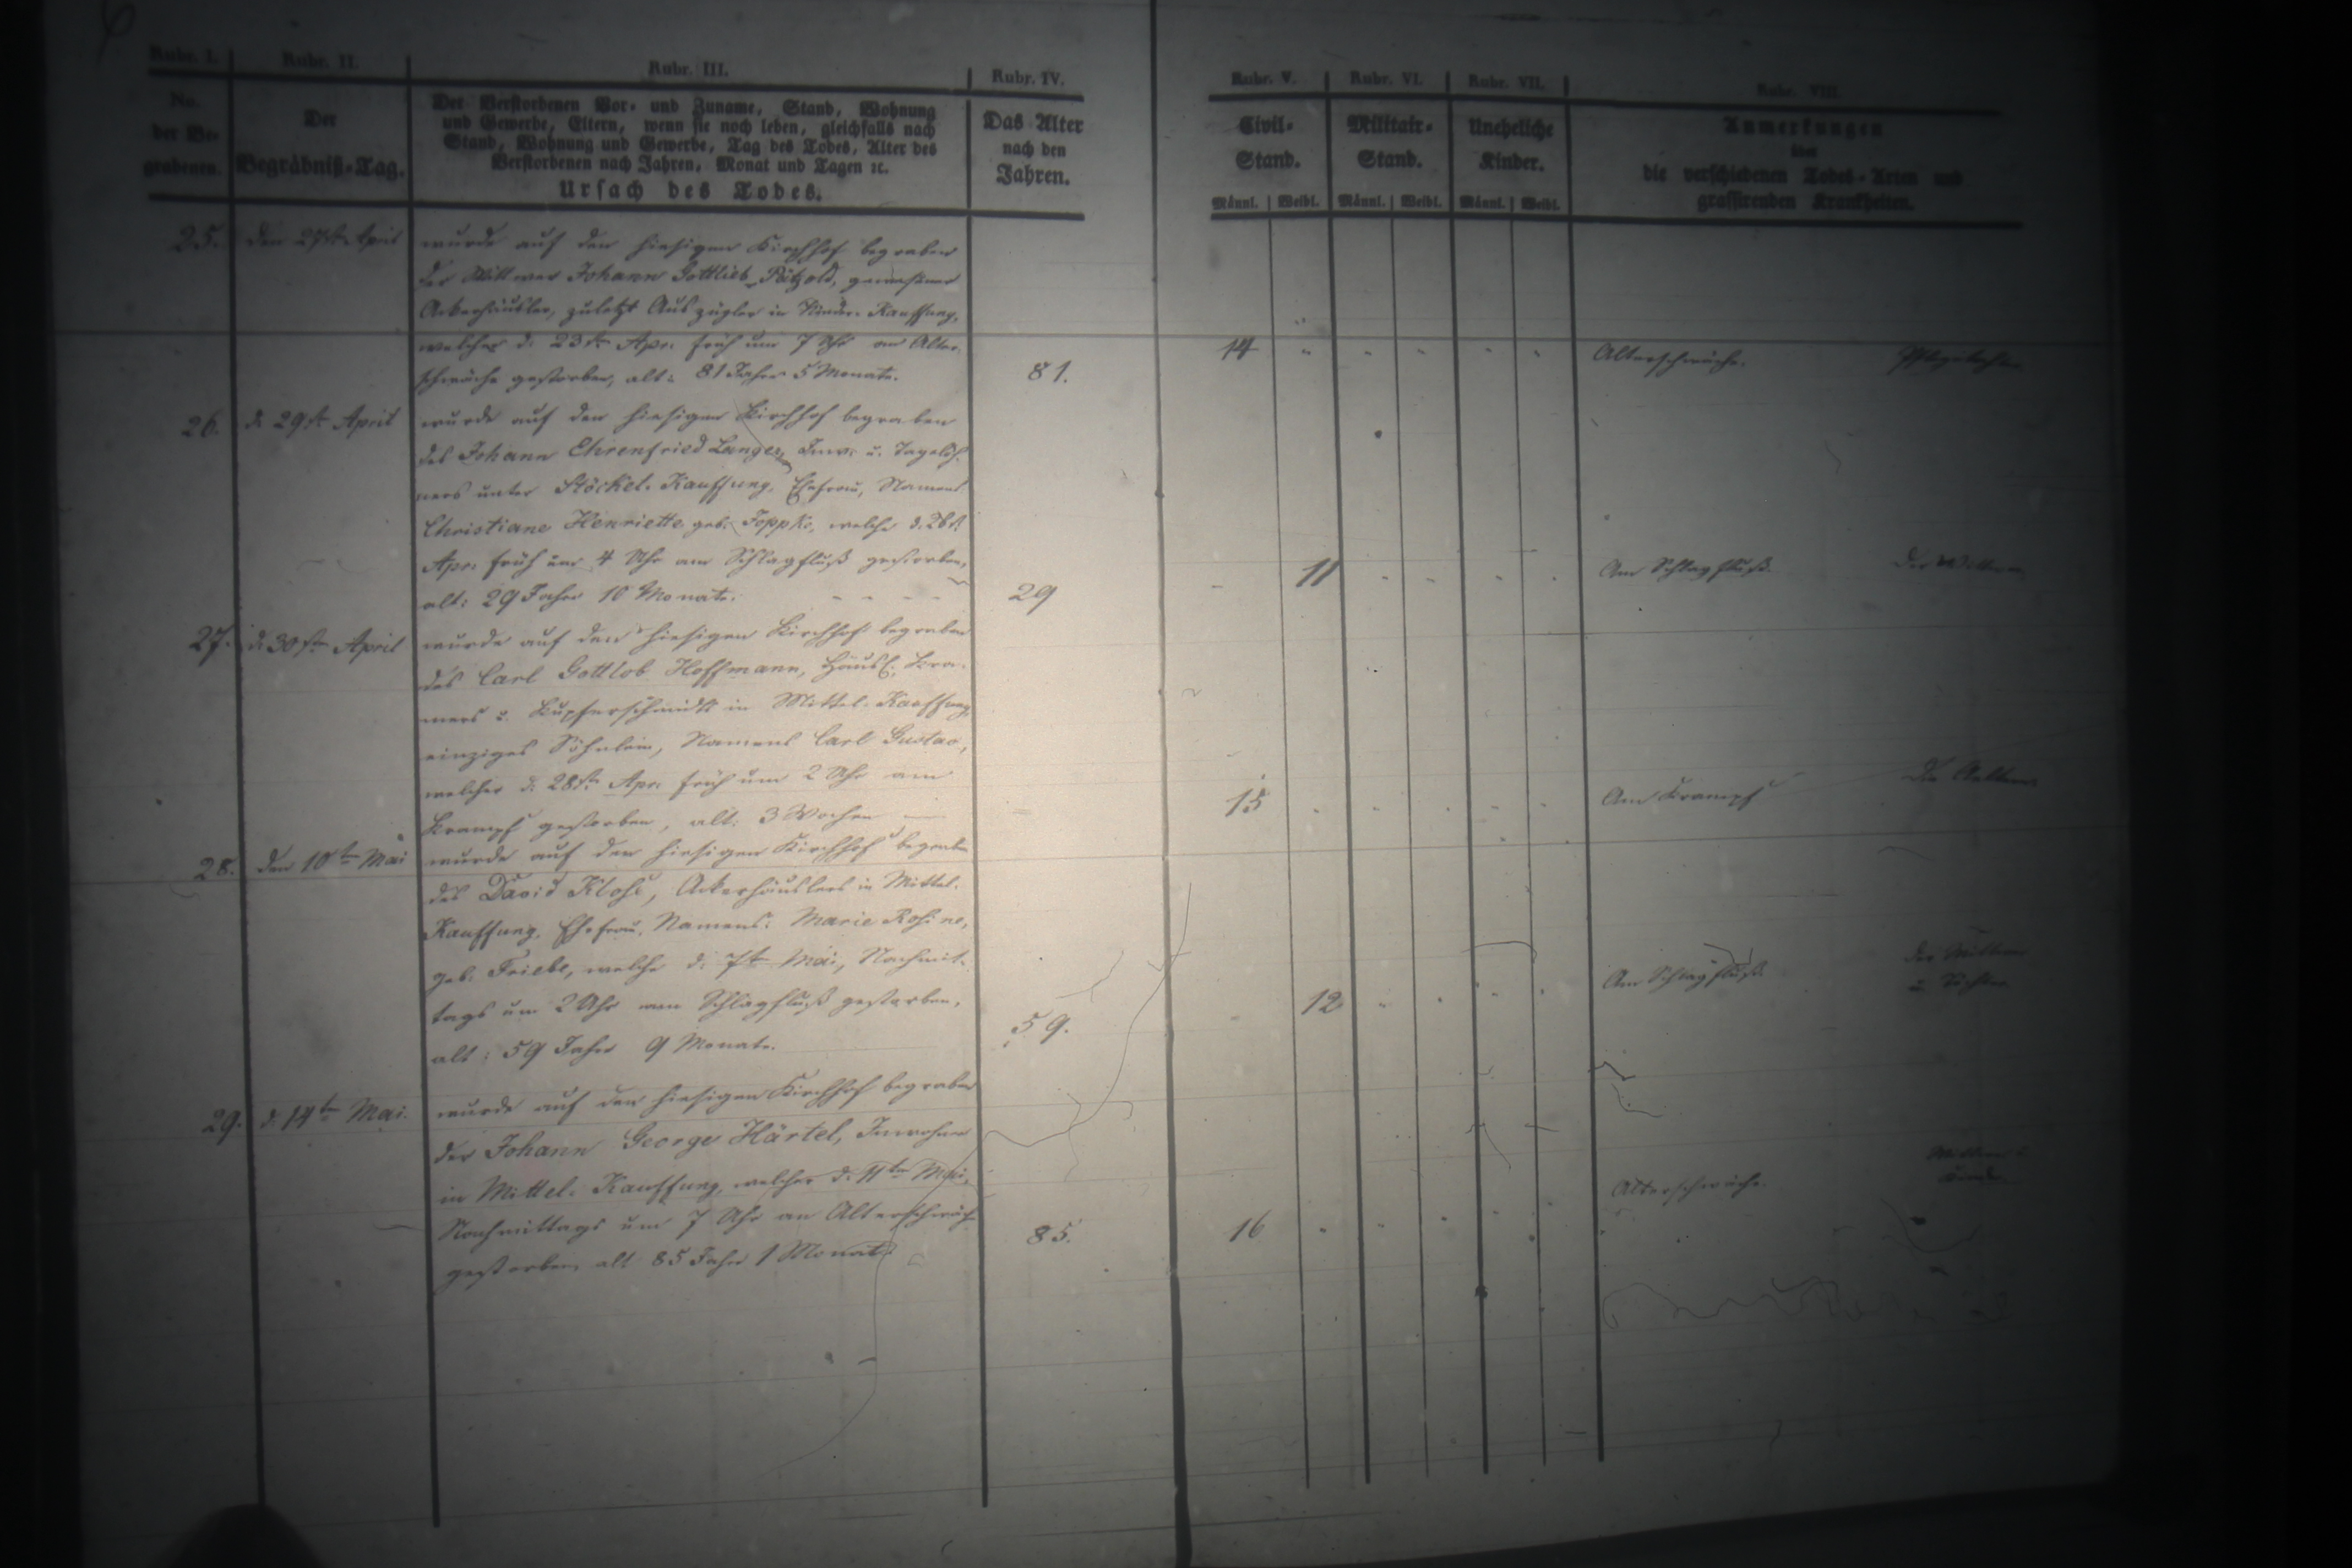 Rubr. I. Rubr. II. Rubr. III. Rubr. IV. Rubr. V. Rubr. VI. Rubr. VII. Rubr. VIII.
No.
der Be-
grabenen.
Der
Begräbniß-Tag.
Der Verstorbenen Vor- und Zuname, Stand, Wohnung
und Gewerbe, Eltern, wenn sie noch leben, gleichfalls nach
Stand, Wohnung und Gewerbe, Tag des Todes, Alter des
Verstorbenen nach Jahren, Monat und Tagen ꝛc.
Ursach des Todes.
Das Alter
nach den
Jahren.
Civil-
Stand.
Männl. Weibl.
Militair-
Stand.
Männl. Weibl.
Uneheliche
Kinder.
Männl. Weibl.
Anmerkungen
über
die verschiedenen Todes-Arten und
grassirenden Krankheiten.
25. den 27st. April
wurde auf den hiesigen Kirchhof begraben
der Wittwer Johann Gottlieb Pätzold, gewesener
Ackerhäusler, zuletzt Auszügler in Nieder-Kauffung,
welcher d. 23st. Apr. früh um 7 Uhr an Alter-
schwäche gestorben, alt: 81 Jahre 5 Monate.
81. 14 Alterschwäche.
26. d. 29st. April
wurde auf den hiesigen Kirchhof begraben
des Johann Ehrenfried Langer, Inw. u. Tagelöh-
ners unter Stöckel-Kauffung, Ehefrau, Namens
Christiane Henriette geb. Joppke, welche d. 26st.
Apr. früh um 4 Uhr am Schlagfluß gestorben,
alt: 29 Jahre 10 Monate.
29 11 Am Schlagfluß. Der Wittwer
27. d. 30sten April
wurde auf den hiesigen Kirchhof begraben
des Carl Gottlob Hoffmann, Häusl. Kra-
mers u. Kupferschmidts in Mittel-Kauffung,
einziges Söhnlein, Namens Carl Gustav,
welcher d. 28st. Apr. früh um 2 Uhr am
Krampf gestorben, alt: 3 Wochen
15 Am Krampf Die Aeltern
28. den 10t. Mai
wurde auf den hiesigen Kirchhof begraben
des David Klose, Ackerhäuslers in Mittel-
Kauffung, Ehefrau, Namens: Marie Rosine,
geb. Friebe, welche d. 7t. Mai, Nachmit-
tags um 2 Uhr am Schlagfluß gestorben,
alt: 59 Jahre 9 Monate.
59. 12 Am Schlagfluß. Der Wittwer
29. d. 14ten Mai.
wurde auf den hiesigen Kirchhof begraben
der Johann George Härtel, Inwohner
in Mittel-Kauffung, welcher d. 11ten Mai,
Nachmittags um 7 Uhr an Alterschwäche
gestorben alt 85 Jahre 1 Monat.
85. 16 Alterschwäche.